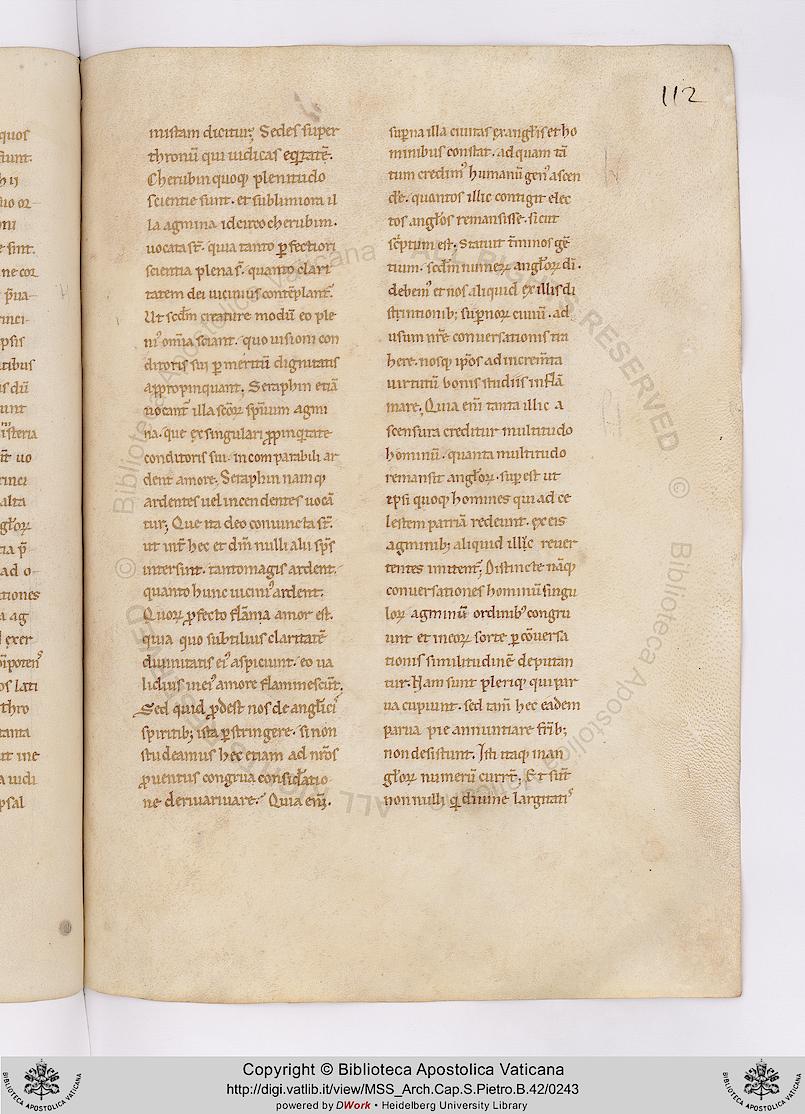 quos
stunt.
h ii
suo or
oni
e sint.
ne cor
p̄ua
rinci
psis
tibus
is dū
unt
isteria
ūt uo
rinci
alta
gl̄oꝝ
tia p̄
ad o
tiones
a ag
l exer
īpotenꝰ
os lati
thro
tanta
ut me
a uidi
psal
112
mistam dicitur; Sedes super
thronū qui iudicas eq̇tatē.
Cherubin quoqꝫ plenitudo
scientie sunt. et sublimiora il
la agmina idcirco cherubim.
uocata st̄. quia tanto ꝑfectiori
scientia plena s̄. quanto clari
tatem dei uicinius contēplant᷑.
Ut scd̄m creature modū eo ple
niꝰ om̄ia sciant. quo uisioni con
ditoris sui ꝑ meritū dignitatis
appropinquant; Seraphin etiā
uocant᷑ illa sc̄oꝝ sp̄iuum agmi
na. que ex singulari ꝓpinq̇tate
conditoris sui incomparabili ar
dent amore; Seraphin namqꝫ
ardentes uel incendentes uocā
tur; Que ita deo coniuncta st̄.
ut int̄ hec et dm̄ nulli alii sp̄s
intersint. tantomagis ardent.
quanto hunc uiciniꝰ ardent.
Quoꝝ ꝓfecto flāma amor est.
quia quo subtilius claritatē
diuinitatis eiꝰ aspiciunt. eo ua
lidius in eiꝰ amore flammescūt.
Sed quid ꝓdest nos de angl̄icis
spiritib; ista ꝑstringere. si non
studeamus hec etiam ad nr̄os
ꝓuentus congrua consid̄atio
ne deriuarиuare. Quia eni᷑.
sup̄na illa ciuitas ex angl̄is et ho
minibus constat. ad quam tā
tum credimꝰ humanū genꝰ ascen
de᷑. quantos illic contigit elec
tos angl̄os remansisse. sicut
sc̄ptum est. Statuit t̄minos gē
tium. scd̄m numerꝝ angl̄oꝝ dī.
debemꝰ et nos aliquid ex illis di
strintionib; sup̄noꝝ ciuiū. ad
usum nr̄e conuersationis tra
here. nosqꝫ ip̄os ad increm̄ta
uirtutū bonis studiis inflā
mare; Quia eni᷑ tanta illic a
scensura creditur multitudo
hominū. quanta multitudo
remansit angl̄oꝝ. sup̄est ut
ipsi quoqꝫ homines qui ad ce
lestem patriā redeunt. ex eis
agminib; aliquid illic reuer
tentes imitent᷑; Distincte nāqꝫ
conuersationes hominū singu
loꝝ agminū ordinibꝰ congru
unt et in eoꝝ sorte ꝑ cōuersa
tionis similitudinē deputan
tur. Nam sunt pleriqꝫ qui par
ua cupiunt. sed tam̄ hec eadem
parua pie annuntiare fr̄ib;
non desistunt. Isti itaqꝫ in an
gl̄oꝝ numerū currt̄; Et sūt
non nulli q̇ diuine largitatis
Copyright © Biblioteca Apostolica Vaticana
http://digi.vatlib.it/view/MSS_Arch.Cap.S.Pietro.B.42/0243
powered by DWork • Heidelberg University Library